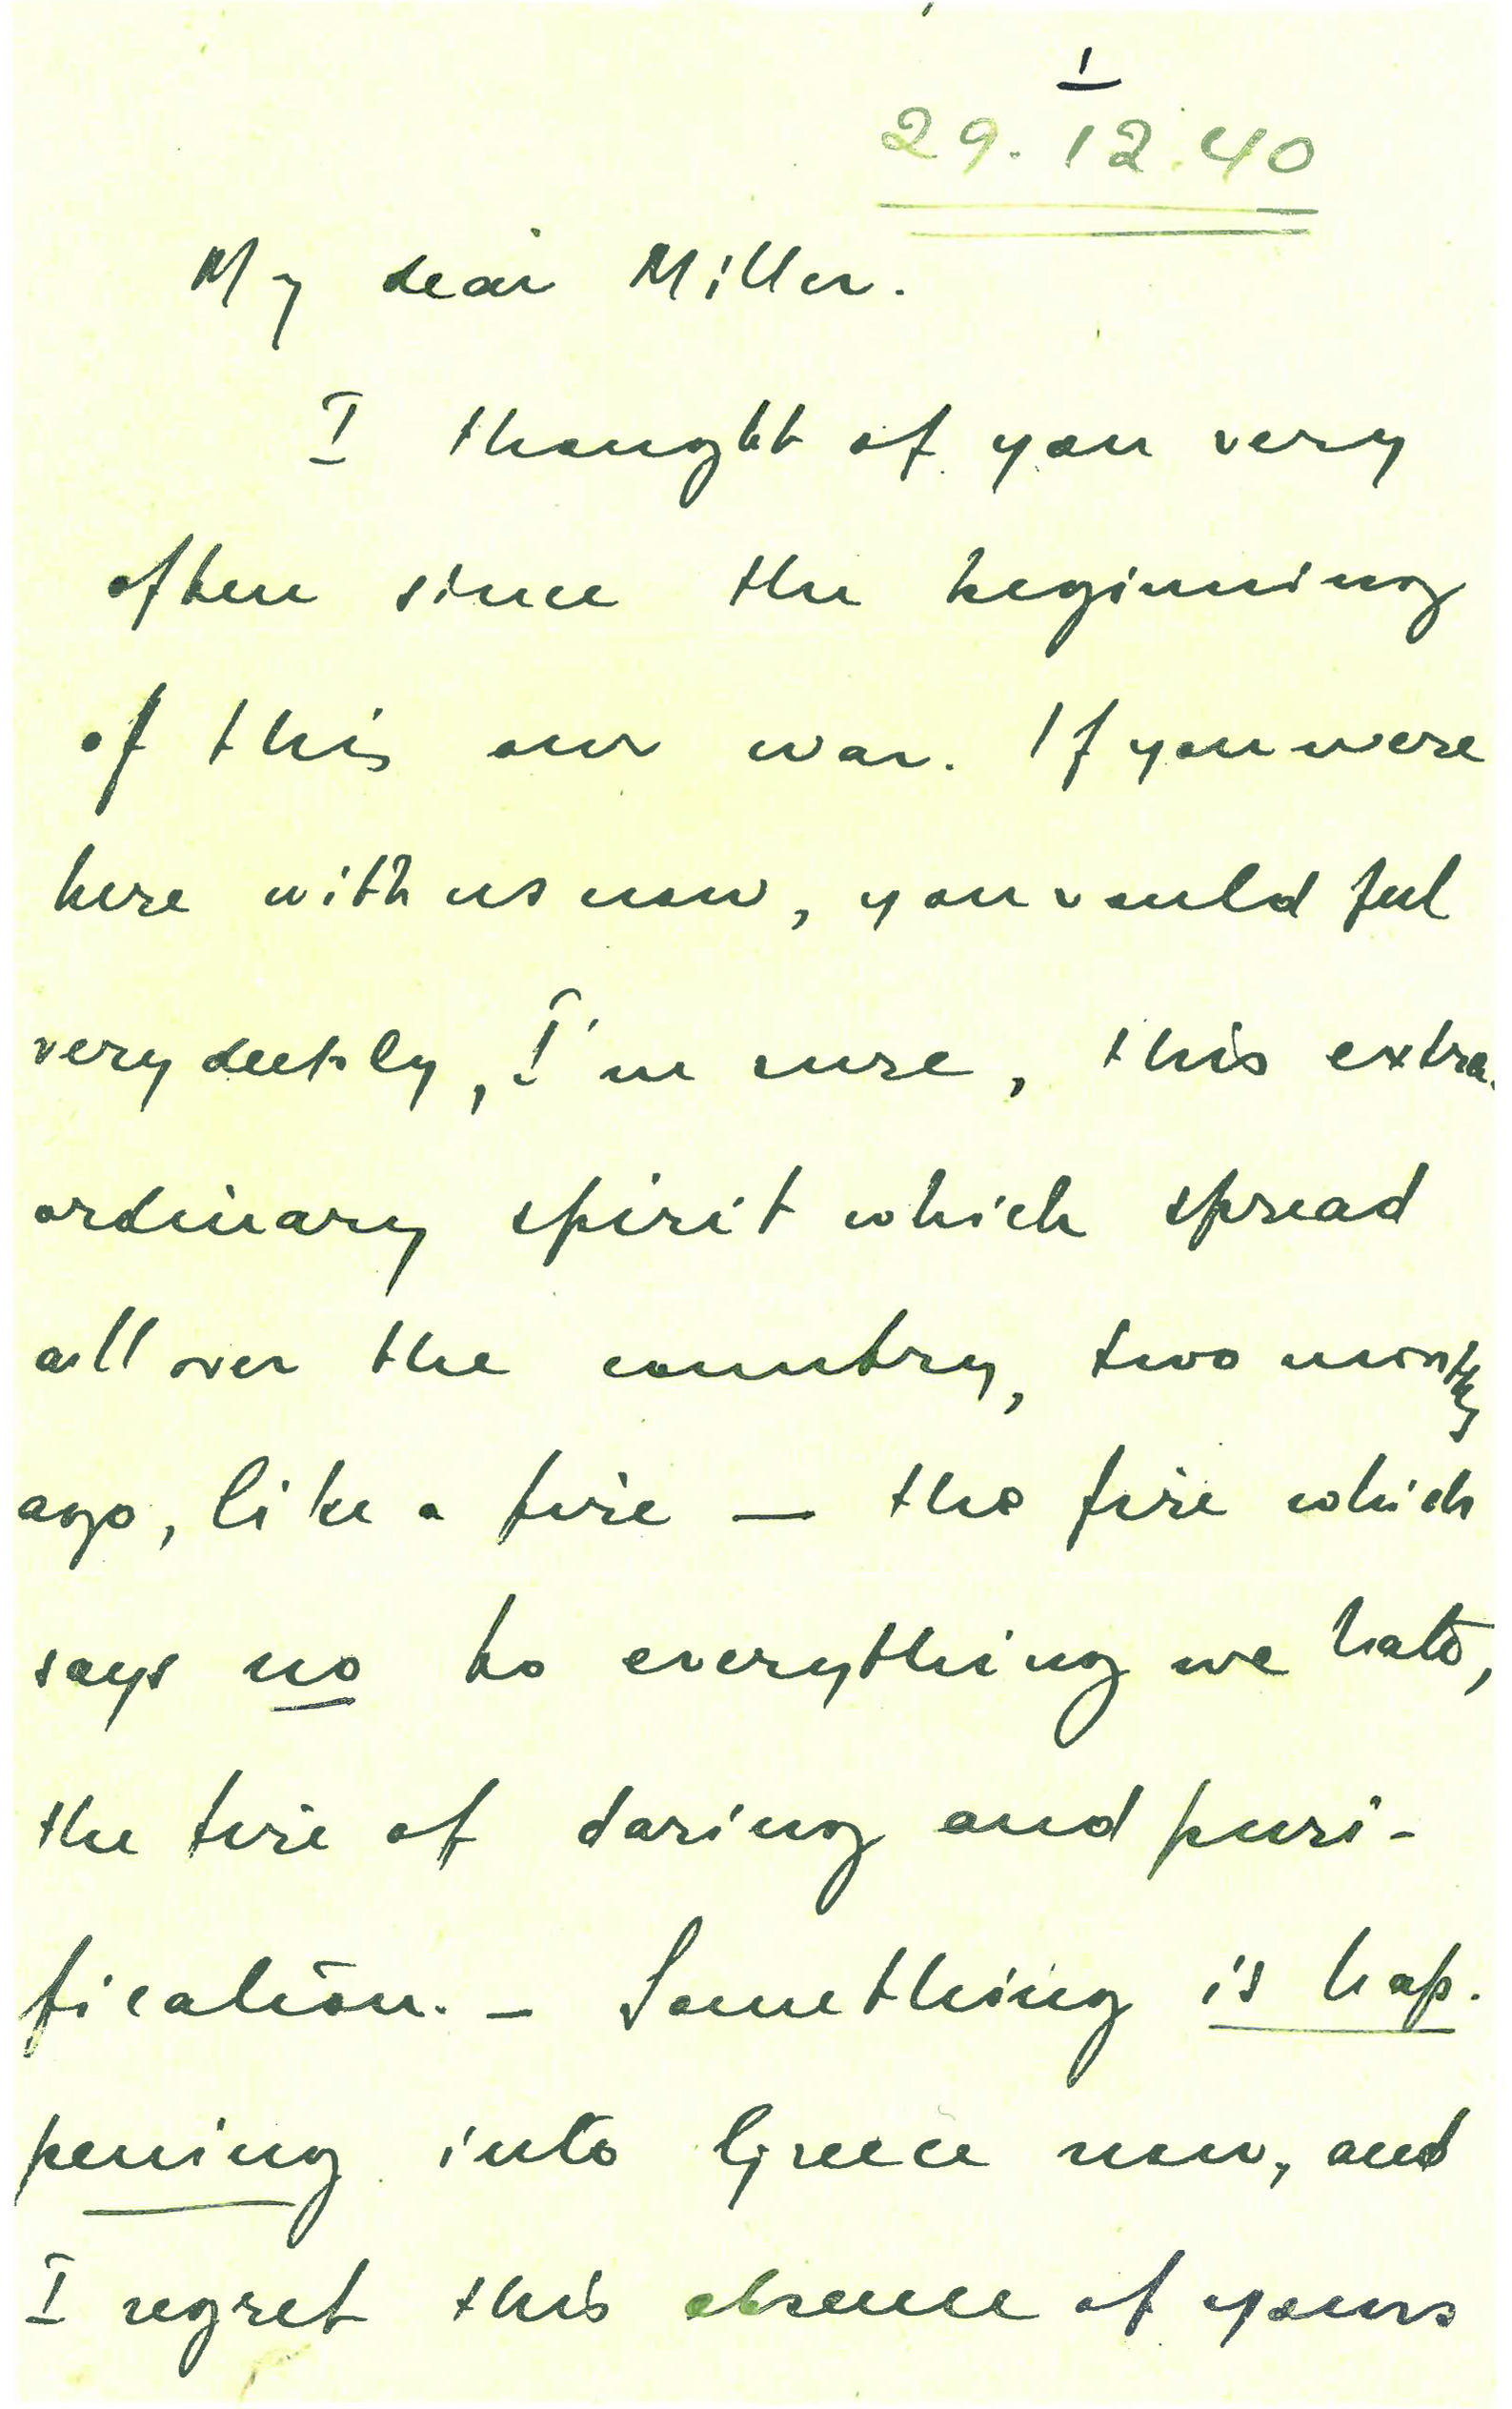 1
29.12.40
My dear Miller.
I thought of you very
often since the beginning
of this our war. If you were
here with us now, you would feel
very deeply, I'm sure, this extra-
ordinary spirit which spread
all over the country, two months
ago, like a fire — the fire which
says no to everything we hate,
the fire of daring and puri-
fication. — Something is hap-
pening into Greece now, and
I regret this absence of yours